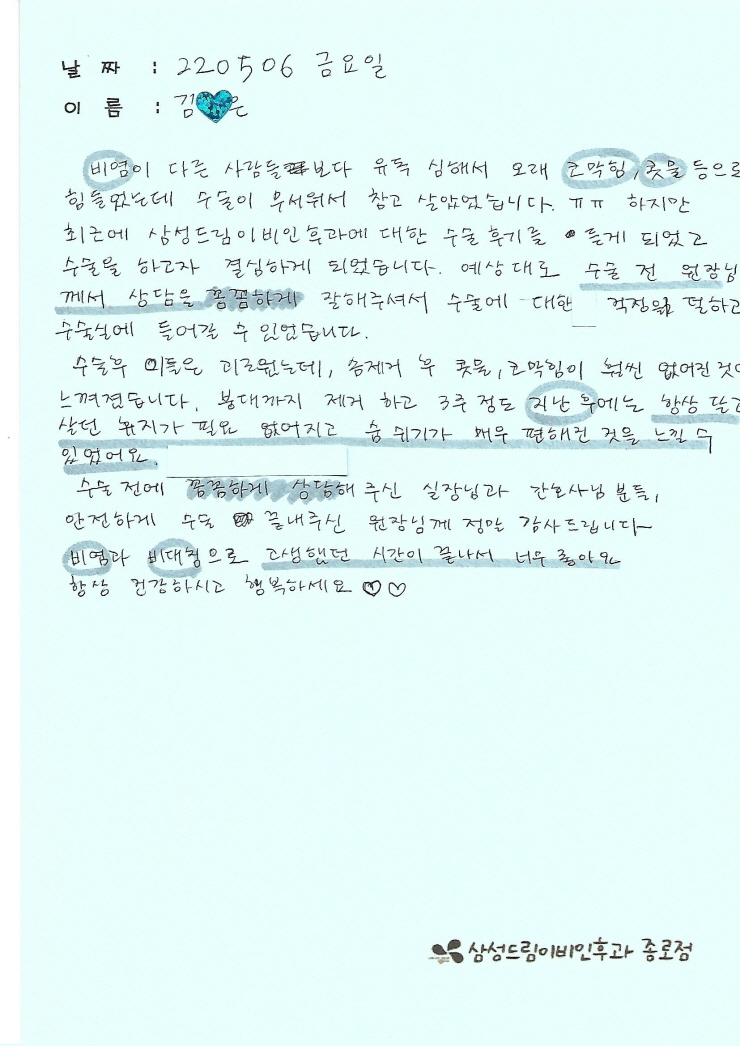 날 짜 : 220506 금요일
이 름 : 김 은
비염이 다른 사람들보다 유독 심해서 오래 코막힘, 콧물 등으로
힘들었는데 수술이 무서워서 참고 살았었습니다. ㅠㅠ 하지만
최근에 삼성드림이비인후과에 대한 수술 후기를 듣게 되었고
수술을 하고자 결심하게 되었습니다. 예상대로 수술 전 원장님
께서 상담을 꼼꼼하게 잘해주셔서 수술에 대한 걱정을 덜하고
수술실에 들어갈 수 있었습니다.
수술후 이틀은 괴로웠는데, 솜제거 후 콧물, 코막힘이 훨씬 없어진 것이
느껴졌습니다. 붕대까지 제거 하고 3주 정도 지난 후에는 항상 달고
살던 휴지가 필요 없어지고 숨 쉬기가 매우 편해진 것을 느낄 수
있었어요.
수술 전에 꼼꼼하게 상담해 주신 실장님과 간호사님 분들,
안전하게 수술 끝내주신 원장님께 정말 감사드립니다~
비염과 비대칭으로 고생했던 시간이 끝나서 너무 좋아요
항상 건강하시고 행복하세요 ♡♡
삼성드림이비인후과 종로점